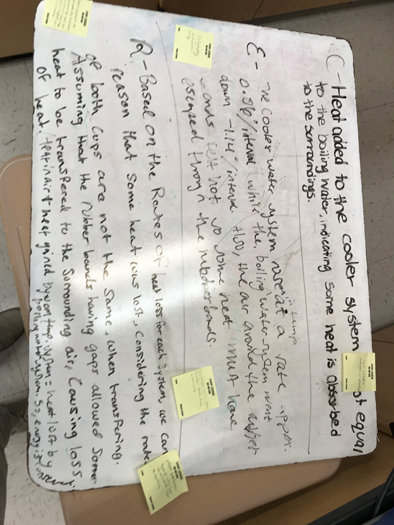 C- Heat added to the cooler system not equal
to the boiling water, indicating some heat is absorbed
to the surroundings.
E- The cooler water system rose at a rate approx.
0.816°/interval while the boiling water system went
down -1.14°/interval. Also, the air around the rubber
bands was hot so some heat must have
escaped through the rubber bands.
R- Based on the Rates of heat loss for each system, we can
reason that some heat was lost, considering the rate
of both cups are not the same, when transferring.
Assuming that the rubber bands having gaps allowed some
heat to be transferred to the surrounding air, causing loss
of heat. heat gained by low temp. system = heat lost by
boiling water system. So, energy is